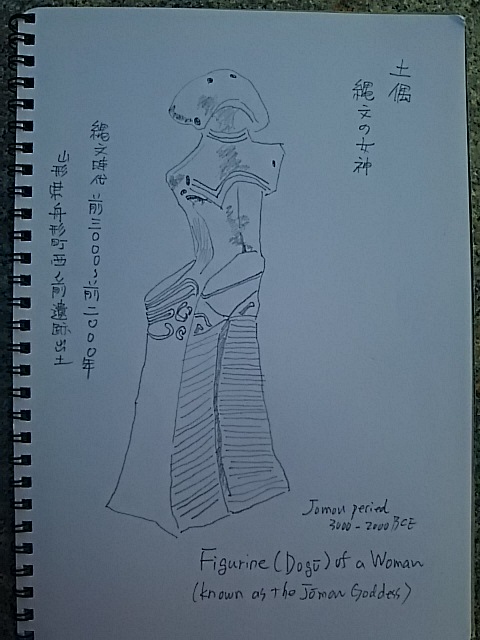 土偶
縄文の女神
縄文時代・前三〇〇〇〜前二〇〇〇年
山形県舟形町西ノ前遺跡出土
Jomon period
3000-2000 BCE
Figurine (Dogū) of a Woman
(known as the Jōmon Goddess)